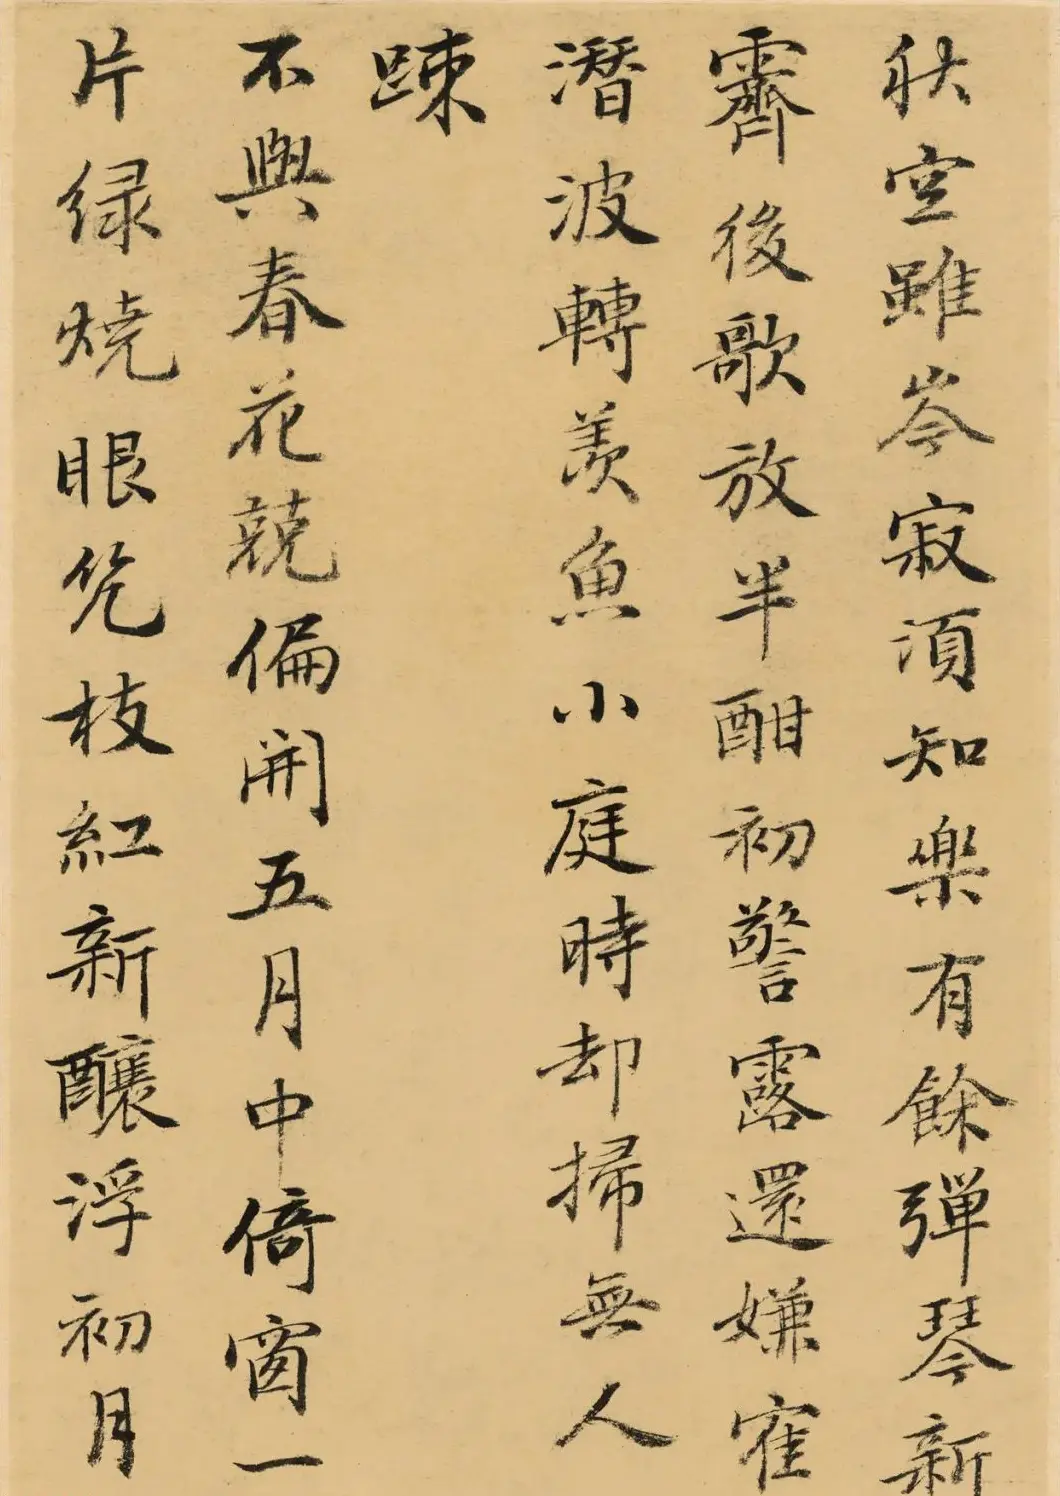 秋空雖岑寂須知樂有餘彈琴新
霽後歌放半酣初警露還嫌寉
潛波轉羨魚小庭時却掃無人
踈
不與春花競偏開五月中倚窗一
片緑燒眼幾枝紅新釀浮初月